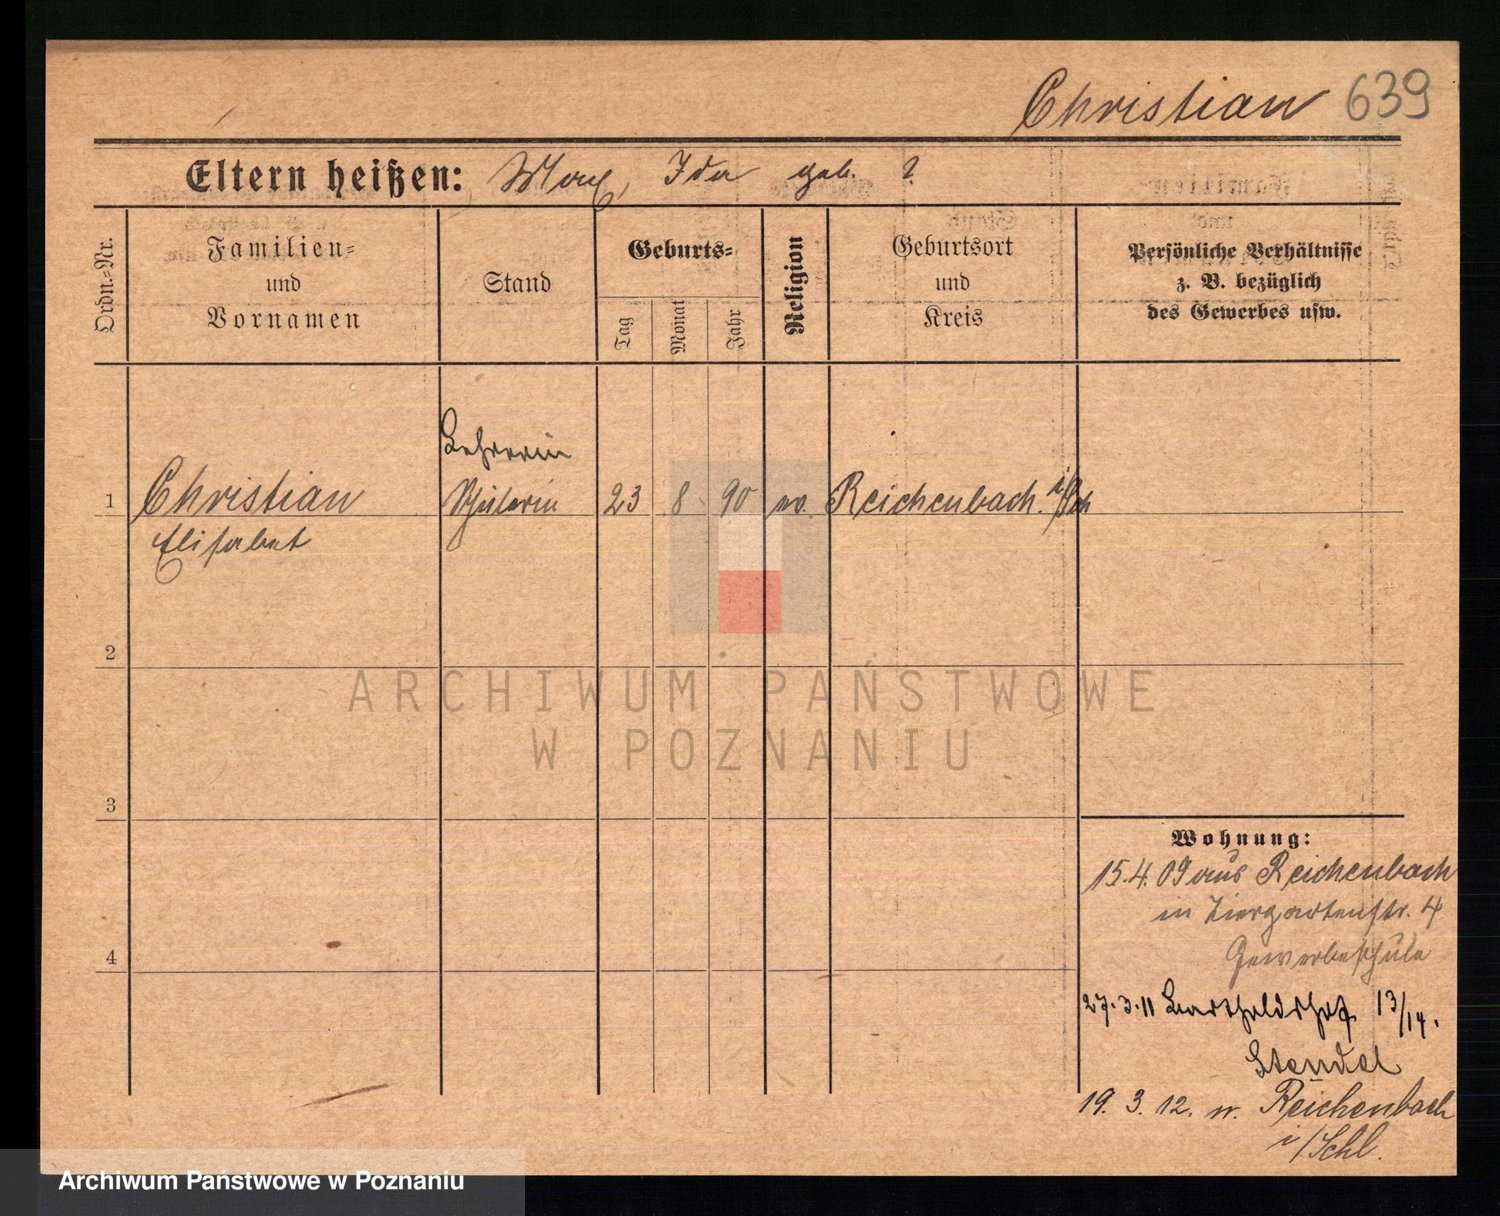 Christian 639
Eltern heißen: Max, Ida geb. ?
Ordn.=Nr.
Familien=
und
Vornamen
Stand
Geburts=
Tag
Monat
Jahr
Religion
Geburtsort
und
Kreis
Persönliche Verhältnisse
z. B. bezüglich
des Gewerbes usw.
Lehrerin
1 Christian Schülerin 23 8 90 ev. Reichenbach i/Sch
Elisabet
2
3
4
Wohnung:
15.4.09 aus Reichenbach
in Tiergartenstr. 4
Gewerbeschule
27.3.11 Bartholdshof 13/14.
Stendel
19. 3. 12. n. Reichenbach
i/Schl.
ARCHIWUM PAŃSTWOWE
W POZNANIU
Archiwum Państwowe w Poznaniu